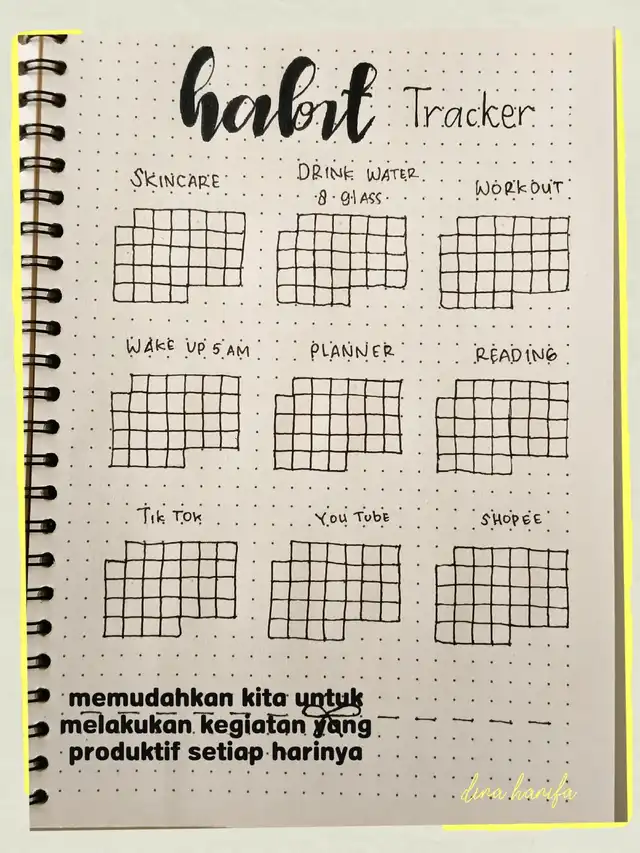 habit Tracker
SKINCARE
DRINK WATER
8 glASS
WORKOUT
WAKE UP 5 AM
PLANNER
READING
TIK TOK
YOU TUBE
SHOPEE
memudahkan kita untuk
melakukan kegiatan yang
produktif setiap harinya
dina hanifa